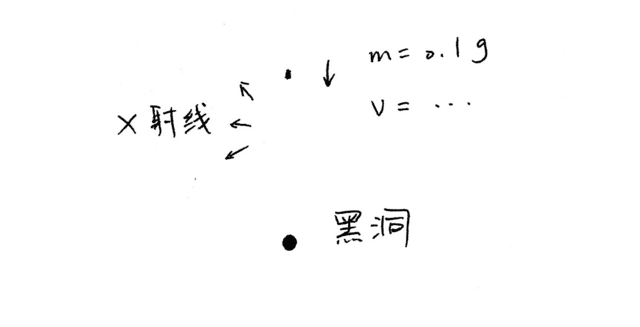 m = 0.1 g
X 射线
v = ...
黑洞